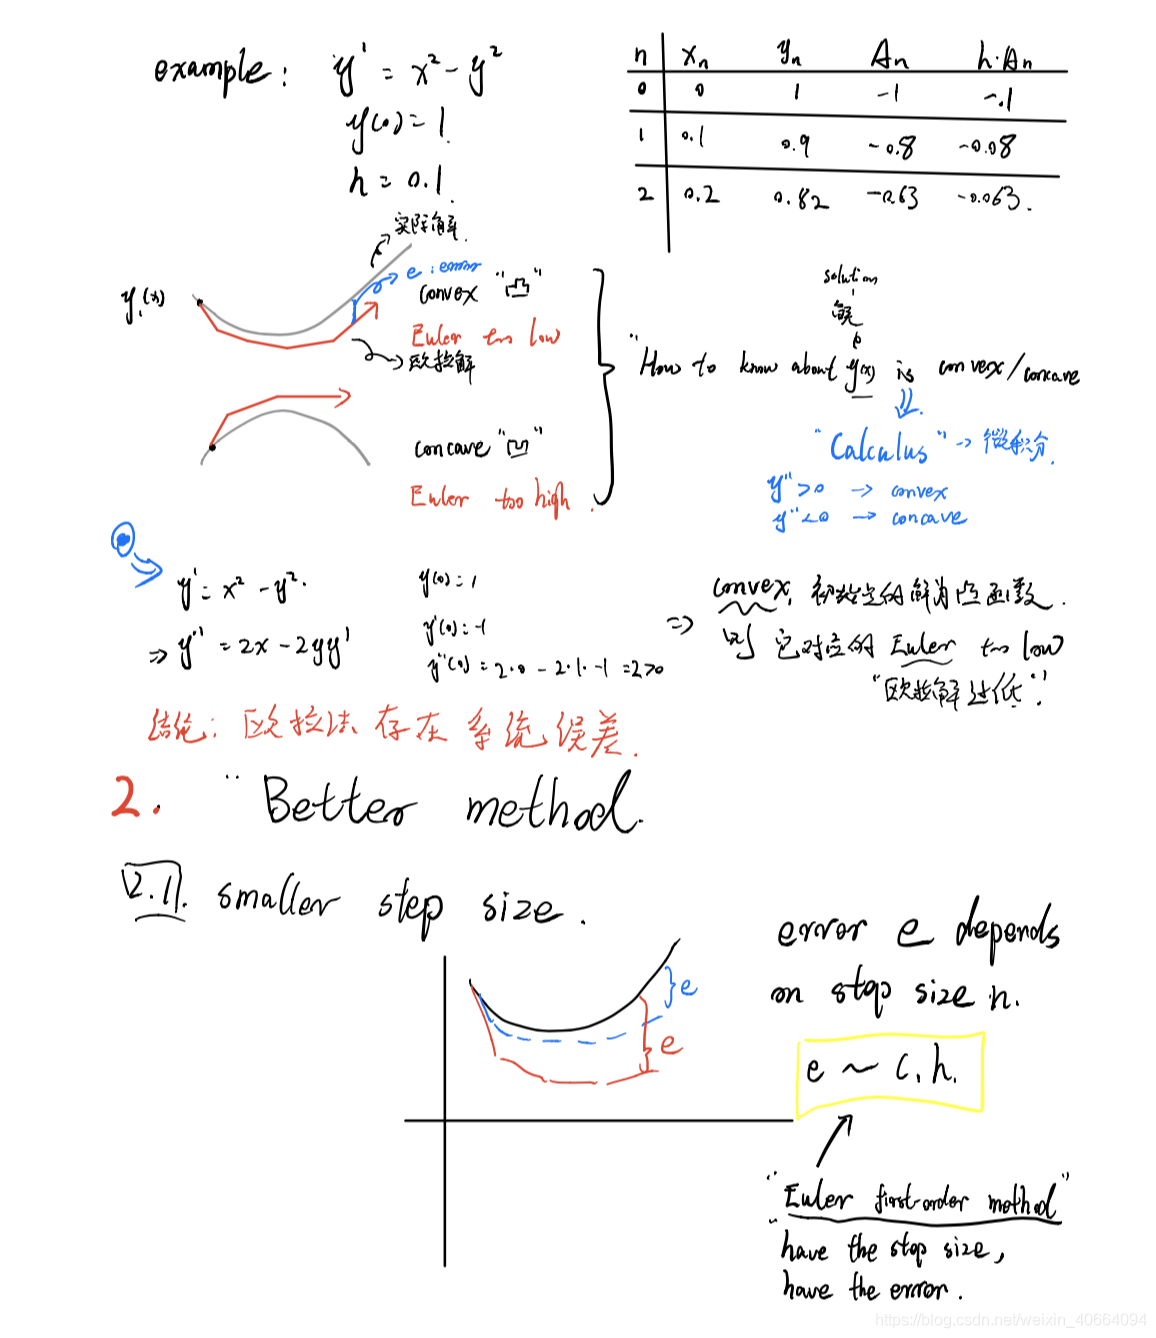 example: y' = x² - y²
y(0) = 1.
h = 0.1.
n xₙ yₙ Aₙ h·Aₙ
0 0 1 -1 -.1
1 0.1 0.9 -0.8 -0.08
2 0.2 0.82 -0.63 -0.063.
实际解.
e : error
y₁(x)
convex "凸"
Euler too low
欧拉解
concave "凹"
Euler too high.
solution
解
"How to know about y(x) is convex/concave
"Calculus" → 微积分.
y''>0 → convex
y''<0 → concave
y' = x² - y².
⇒ y'' = 2x - 2yy'
y(0) = 1
y'(0) = -1
y''(0) = 2·0 - 2·1·-1 = 2>0
⇒ convex, 初始点的解为凸函数.
则它对应的 Euler too low
"欧拉解过低".
结论: 欧拉法存在系统误差.
2. "Better method.
2.1. smaller step size.
e
e
error e depends
on step size h.
e ~ c.h.
"Euler first-order method"
have the step size,
have the error.
https://blog.csdn.net/weixin_40664094